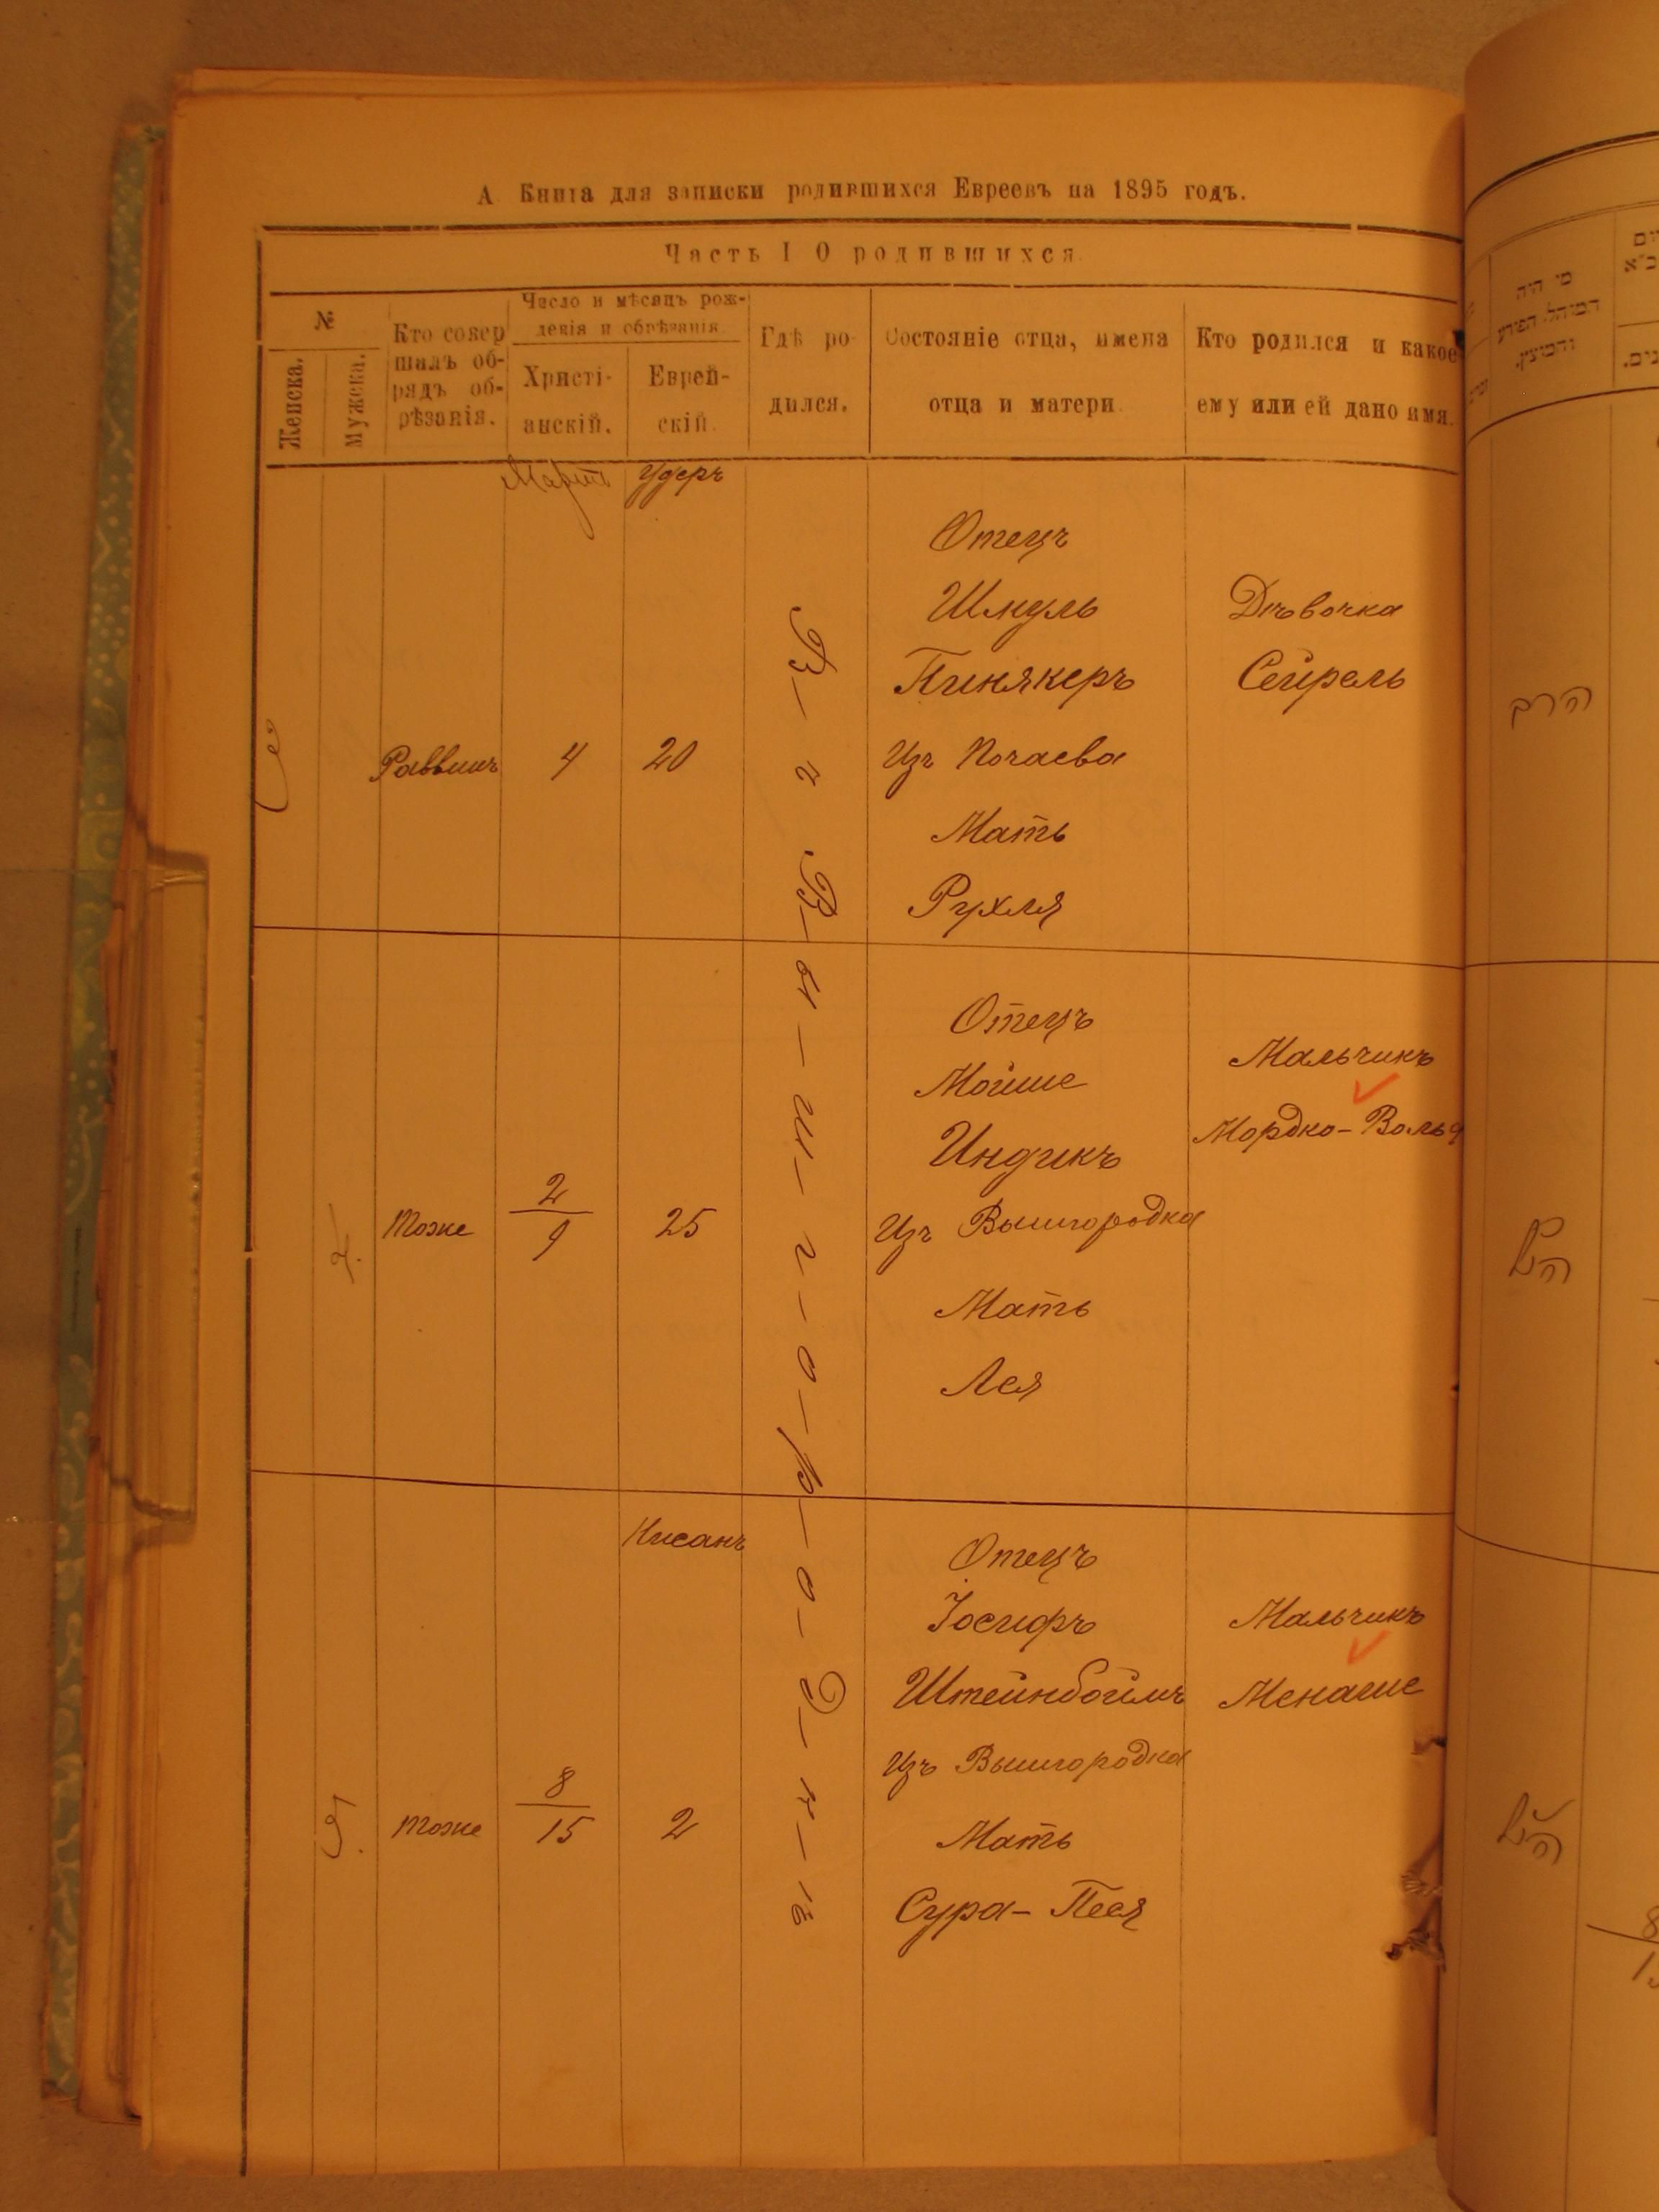 А. Книга для записки родившихся Евреевъ на 1895 годъ.
Часть I О родившихся.
№
Женска.
Мужска.
Кто совер
шалъ об-
рядъ об-
рѣзанія.
Число и мѣсяцъ рож-
денія и обрѣзанія
Христі-
анскій.
Еврей-
скій.
Гдѣ ро-
дился.
Состояніе отца, имена
отца и матери.
Кто родился и какое
ему или ей дано имя.
Мартъ
Удеръ
Раввинъ
4
20
Въ Вышгородкѣ
Отецъ
Шмуль
Пинякеръ
Изъ Почаева
Мать
Рухля
Дѣвочка
Сейрель
Тоже
2
9
25
Отецъ
Мойше
Индикъ
Изъ Вышгородка
Мать
Лея
Мальчикъ
Мордко-Вольф
Нисанъ
Тоже
8
15
2
Отецъ
Іосифъ
Штейнбоймъ
Изъ Вышгородка
Мать
Сура-Песя
Мальчикъ
Менаше
מי היה
המוהל הפורע
והמוצץ.